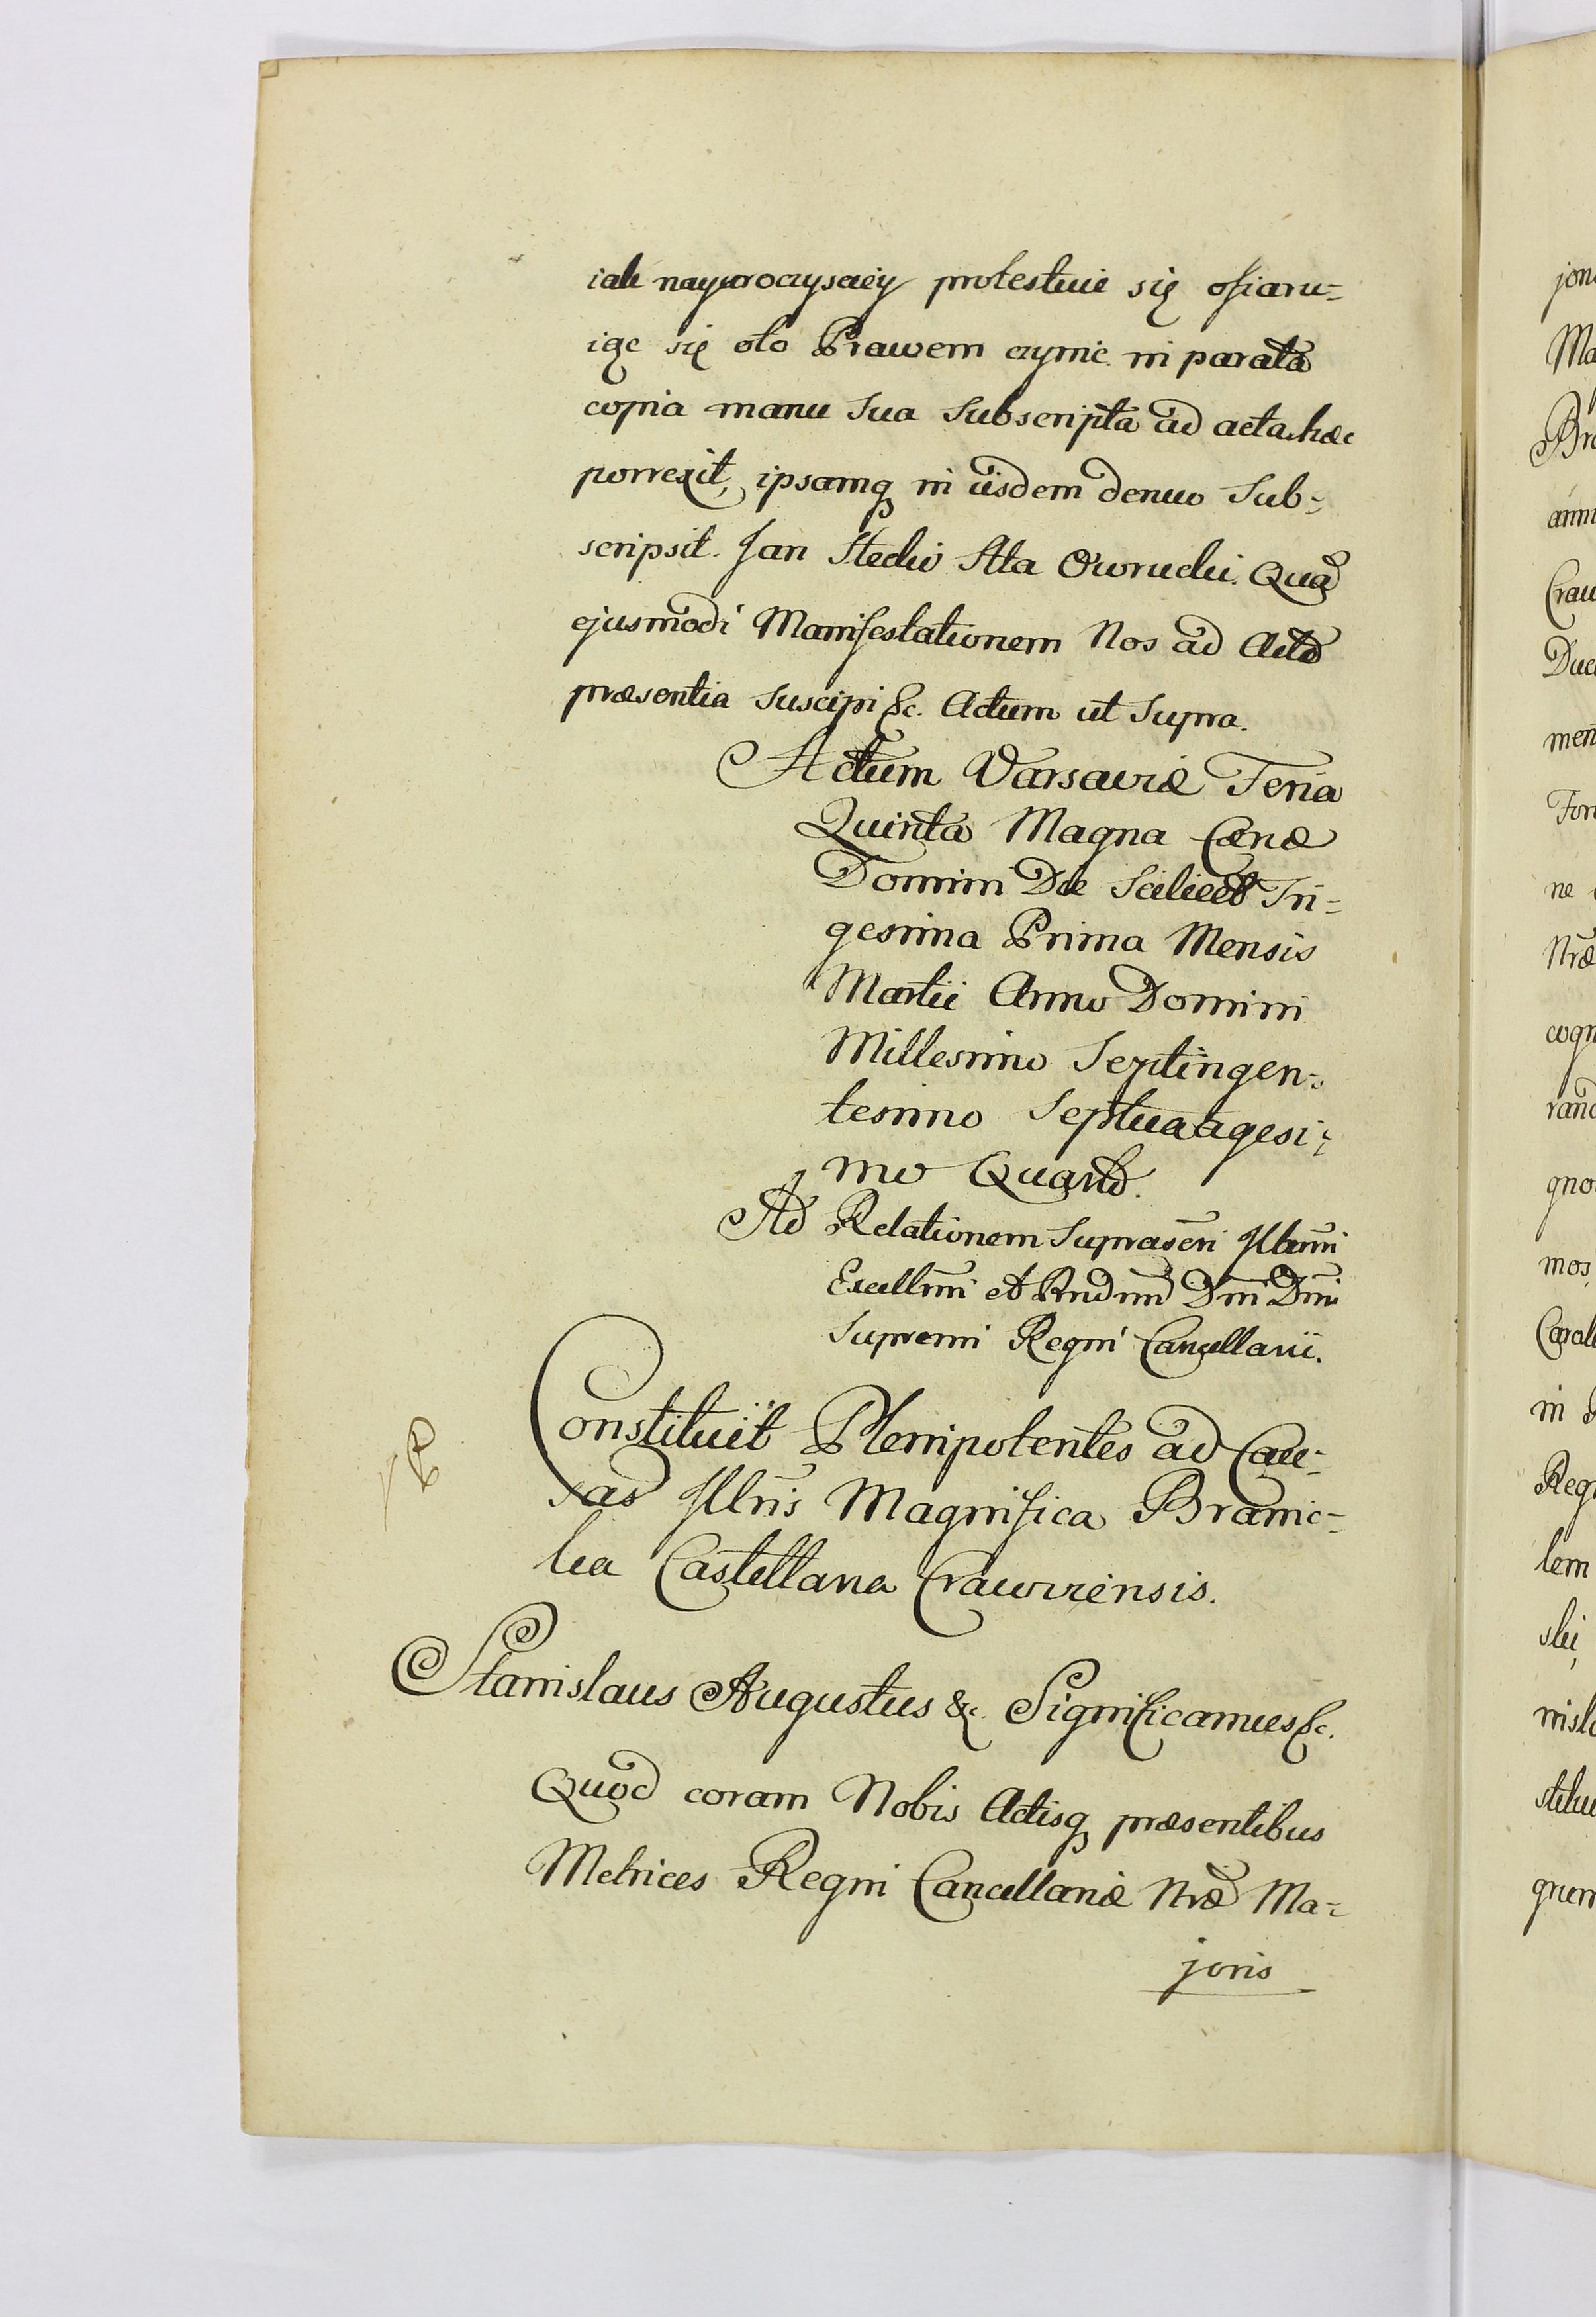 iak nayuroczyściey protestuie się ofiaru=
iąc się oto Prawem czynić in parata
copia manu Sua Subscripta ad acta hæc
porrexit, ipsamq in iisdem denuo Sub=
scripsit. Jan Stecki Stta Owrucki. Quã
ejusmodi Manifestationem Nos ad Acta
præsentia suscipi &c. Actum ut Supra.
Actum Varsaviæ Feria
Quinta Magna Cænæ
Domini Die Scilicet Tri=
gesima Prima Mensis
Martii Anno Domini
Millesimo Septingen=
tesimo Septuagesi=
mo Quarto.
Ad Relationem Suprascri Illmi
Excellmi et Rndmi Dni Dni
Supremi Regni Cancellarii.
Constituit Plenipotentes ad Cau=
sas Illris Magnifica Branic=
ka Castellana Cracoviensis.
Stanislaus Augustus &c. Significamus &c.
Quod coram Nobis Actisq præsentibus
Metrices Regni Cancellariæ Nræ Ma=
joris
jon
Ma
Bra
ann
Crac
Duc
men
For
ne
Nræ
cogn
rand
gno
mos
Carol
in
Reg
lem
ski,
nisla
stitue
gnem